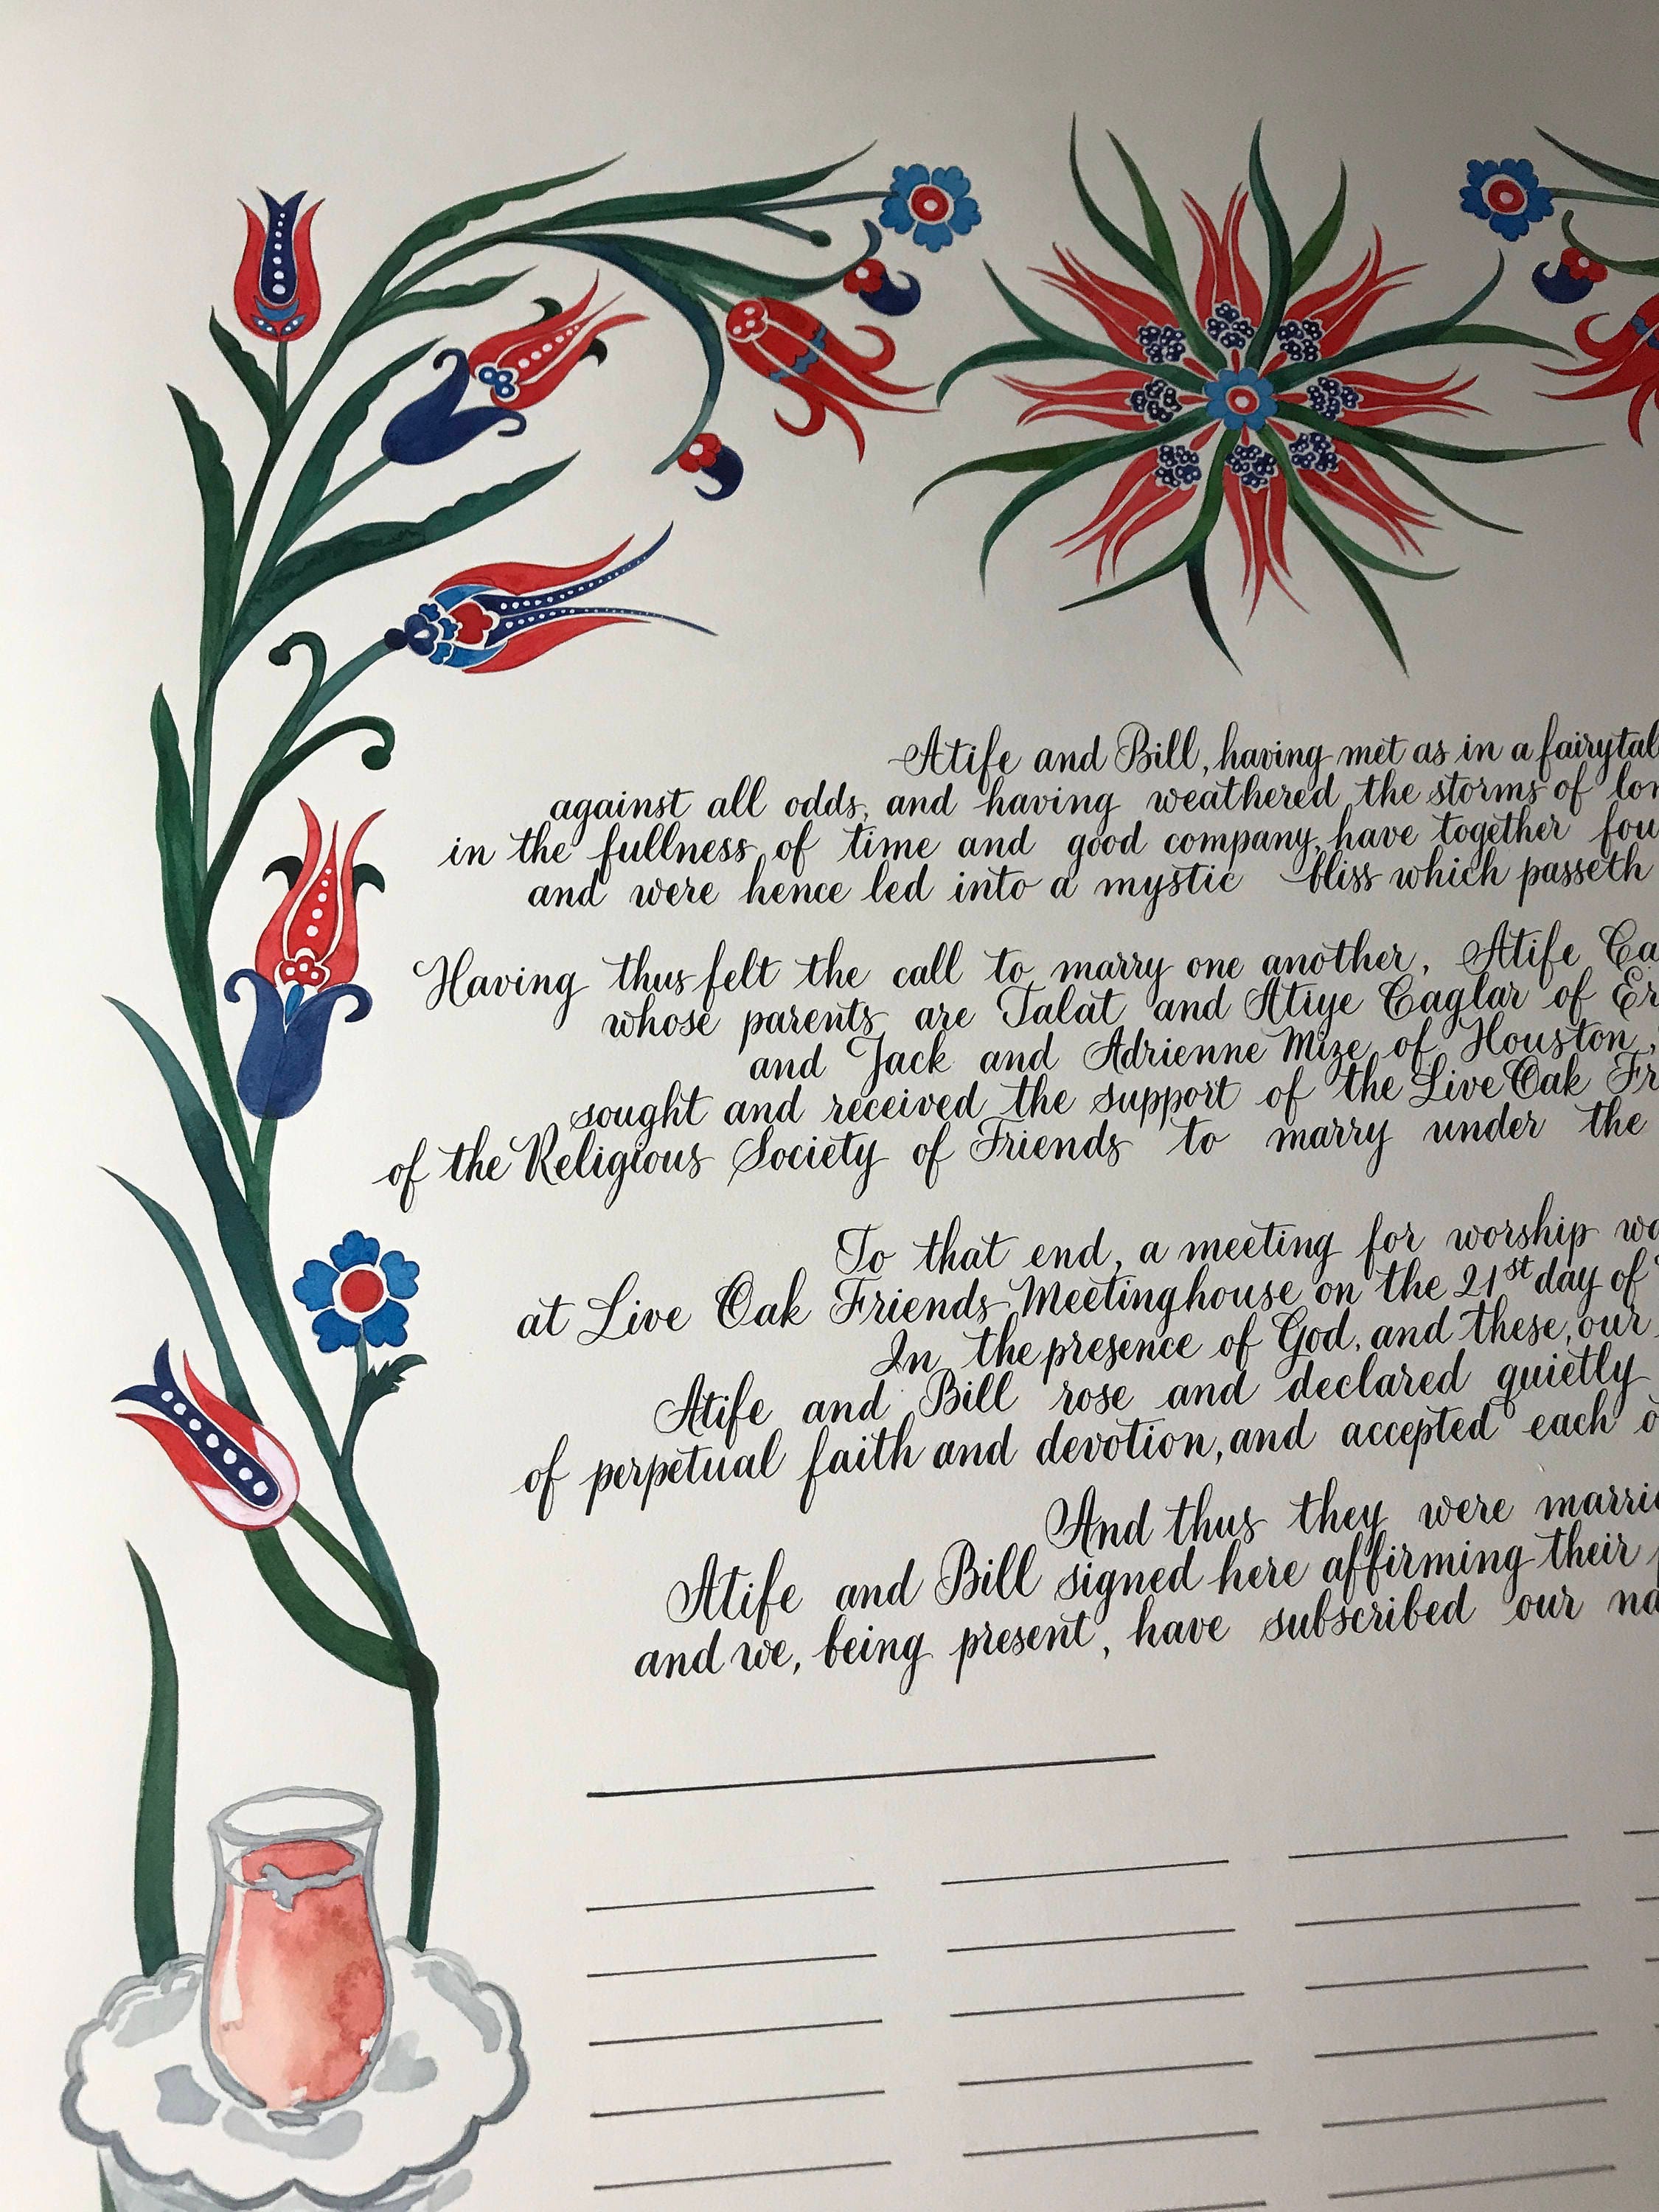 Atife and Bill, having met as in a fairytal
against all odds, and having weathered the storms of lon
in the fullness of time and good company, have together fou
and were hence led into a mystic bliss which passeth
Having thus felt the call to marry one another, Atife Ca
whose parents are Talat and Atiye Caglar of Er
and Jack and Adrienne Mize of Houston,
sought and received the support of the Live Oak Fr
of the Religious Society of Friends to marry under the
To that end, a meeting for worship wa
at Live Oak Friends Meetinghouse on the 21st day of
In the presence of God, and these, our
Atife and Bill rose and declared quietly
of perpetual faith and devotion, and accepted each o
And thus they were marrie
Atife and Bill signed here affirming their
and we, being present, have subscribed our na